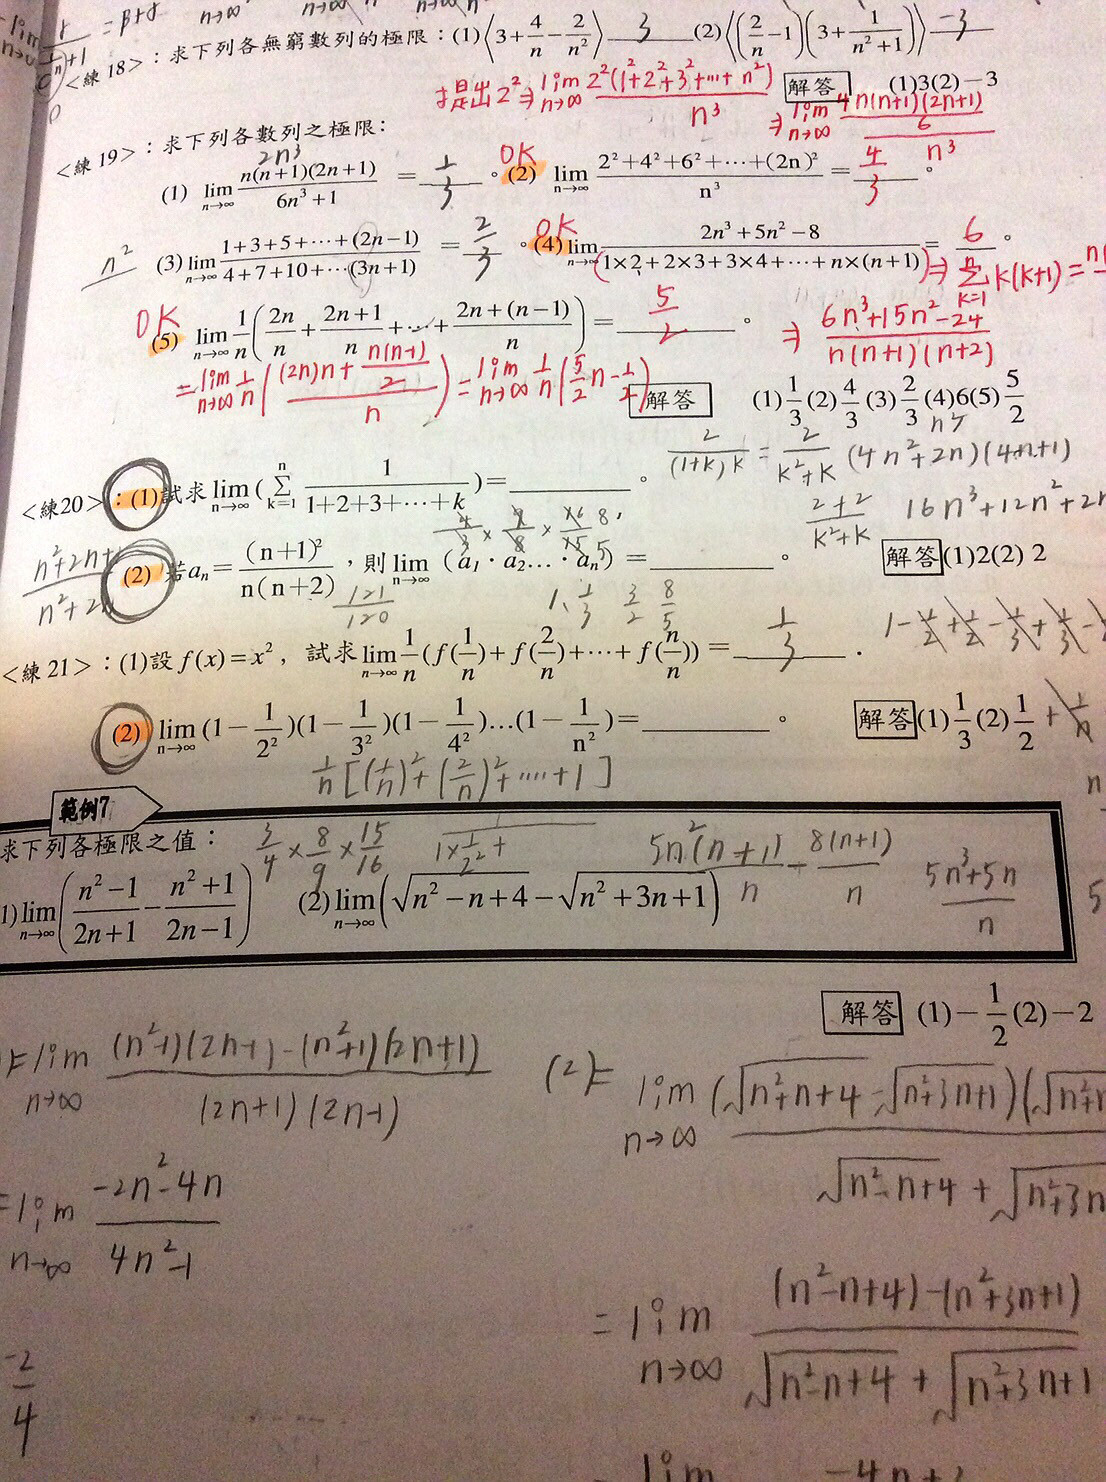 <練18>：求下列各無窮數列的極限：(1)⟨3+4/n−2/n²⟩ 3 (2)⟨(2/n−1)(3+1/(n²+1))⟩ −3
解答 (1)3(2)−3
提出2² ⇒ lim n→∞ 2²(1²+2²+3²+⋯+n²)/n³
⇒ lim n→∞ (4n(n+1)(2n+1)/6)/n³
<練19>：求下列各數列之極限：
2n³
(1) lim n→∞ n(n+1)(2n+1)/(6n³+1) = 1/3 。 OK (2) lim n→∞ (2²+4²+6²+⋯+(2n)²)/n³ = 4/3 。
n² (3) lim n→∞ (1+3+5+⋯+(2n−1))/(4+7+10+⋯(3n+1)) = 2/3 。 OK (4) lim n→∞ (2n³+5n²−8)/(1×2+2×3+3×4+⋯+n×(n+1)) = 6 。
⇒ Σ k=1 n k(k+1)=
OK (5) lim n→∞ 1/n(2n/n+(2n+1)/n+⋯+(2n+(n−1))/n) = 5/2 。
⇒ (6n³+15n²−24)/(n(n+1)(n+2))
= lim n→∞ 1/n(((2n)n+n(n-1)/2)/n) = lim n→∞ 1/n(5/2n−1/2)
解答 (1)1/3(2)4/3(3)2/3(4)6(5)5/2
2/((1+k)k) = 2/(k²+k) (4n²+2n)(4n+1)
<練20>：(1)試求 lim n→∞ (Σ k=1 n 1/(1+2+3+⋯+k)) = 。
(2+2)/(k²+k) 16n³+12n²+2n
4/3 × 9/8 × 16/15
(2) 若aₙ=(n+1)²/(n(n+2))，則 lim n→∞ (a₁·a₂…·aₙ) = 。
解答(1)2(2) 2
121/120
<練21>：(1)設 f(x)=x²，試求 lim n→∞ 1/n(f(1/n)+f(2/n)+⋯+f(n/n)) = 1/3 .
(2) lim n→∞ (1−1/2²)(1−1/3²)(1−1/4²)…(1−1/n²)= 。
解答(1)1/3(2)1/2
1/n[(1/n)²+(2/n)²+⋯+1]
範例7
求下列各極限之值：
3/4×8/9×15/16
8(n+1)/n
(5n³+5n)/n
1) lim n→∞ ((n²−1)/(2n+1)−(n²+1)/(2n−1)) (2) lim n→∞ (√(n²−n+4)−√(n²+3n+1))
解答 (1)−1/2(2)−2
= lim n→∞ ((n²-1)(2n-1)-(n²+1)(2n+1))/((2n+1)(2n-1))
= lim n→∞ (-2n²-4n)/(4n²-1)
-2/4
(2)= lim n→∞ (√(n²-n+4)-√(n²+3n+1))(√(n²-n
√(n²-n+4) + √(n²+3n
= lim n→∞ ((n²-n+4)-(n²+3n+1))/(√(n²-n+4)+√(n²+3n+1))
lim